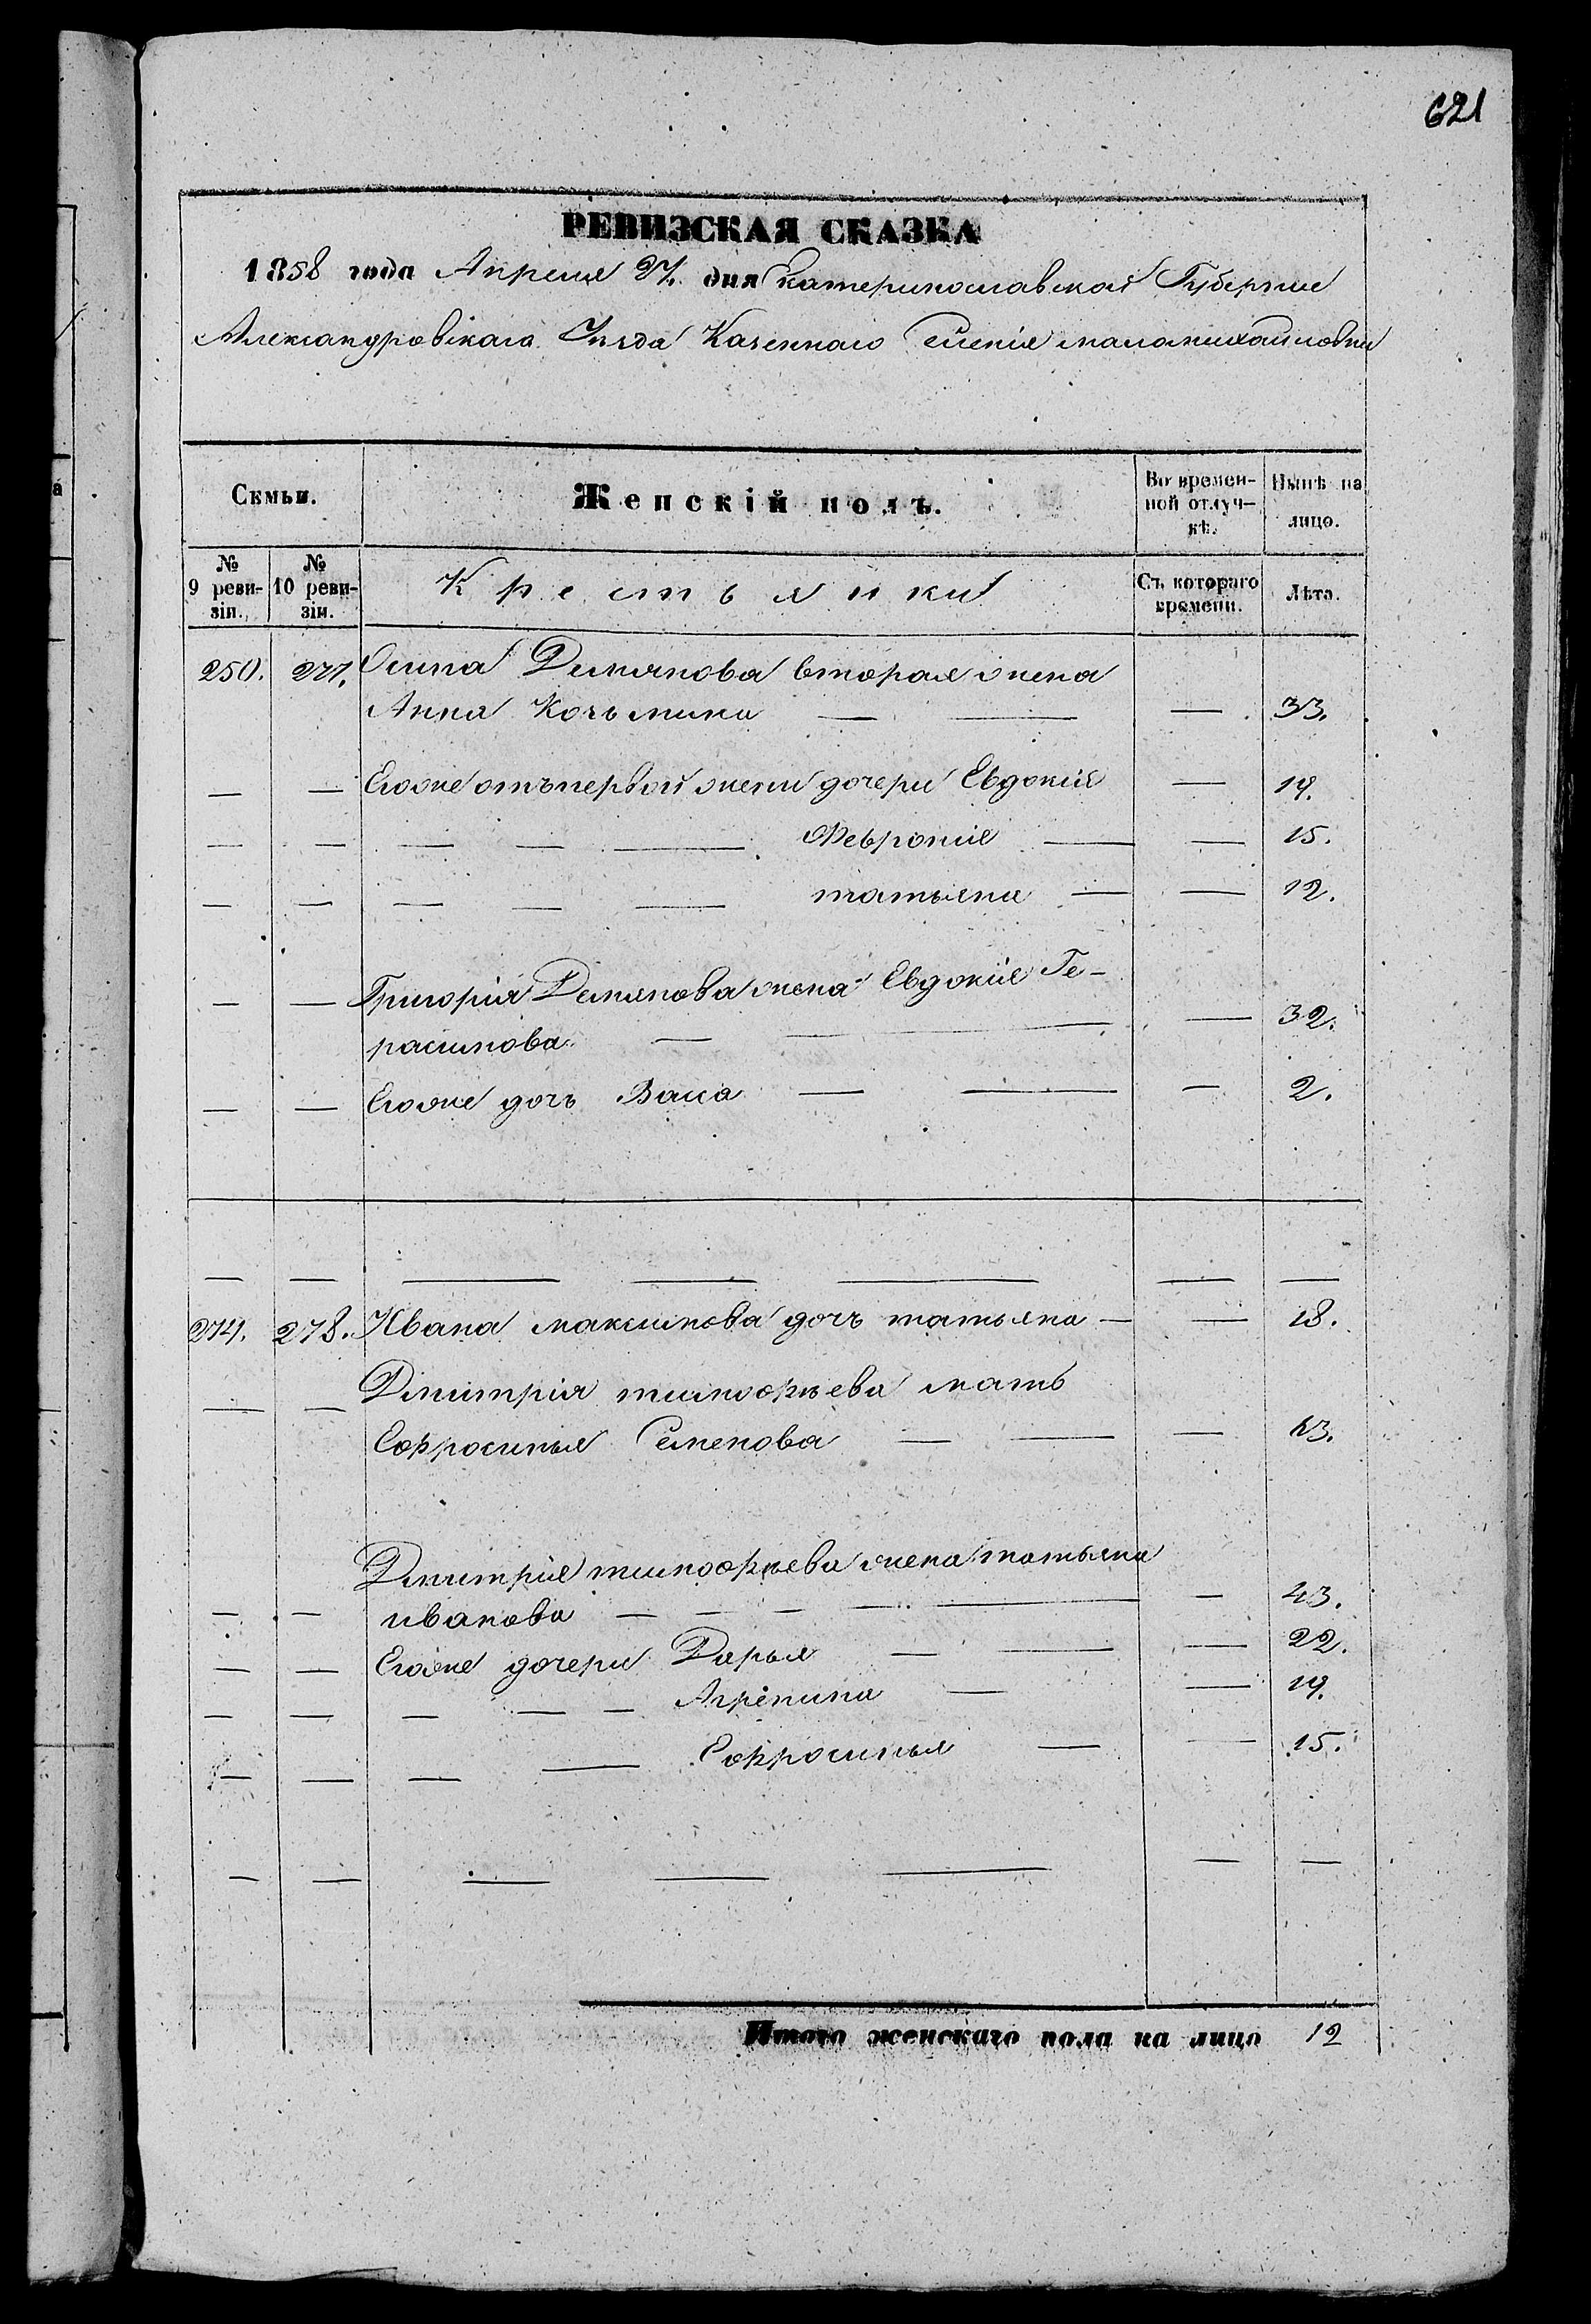 621
РЕВИЗСКАЯ СКАЗКА
1858 года Апреля 27. дня Екатеринославской Губернии
Александровскаго Уѣзда Казеннаго Селенія маломихайловки
Скмьи. Женскій полъ. Во времен- Нынѣ на
ной отлуч- лицо.
кѣ.
№ № Крестьянки Съ котораго Лѣта.
9 реви- 10 реви- времени.
зіи. зіи.
250. 277. Осипа Демянова вторая жена
Анна Козьмина — — — 33.
— — Егоже отъ первой жены дочери Евдокія — 19.
— — — — — Феврония — — 15.
— — — — — татьяна — — 12.
— — Григорія Демянова жена Евдокія Ге-
расимова — — — 32.
— — Егоже дочь Васса — — — 2.
— — — — — — —
274. 278. Ивана максимова дочь татьяна — — 18.
— — Дмитрія тимофѣева мать
Ефросинья Семенова — — — 63.
Дмитрія тимофѣева жена татьяна
— — иванова — — — — — — 43.
— — Егоже дочери Дарья — — — 22.
— — — — — Агрепина — — 19.
— — — — Ефросинья — — 15.
— — — — — — —
Итого женскаго пола на лицо 12